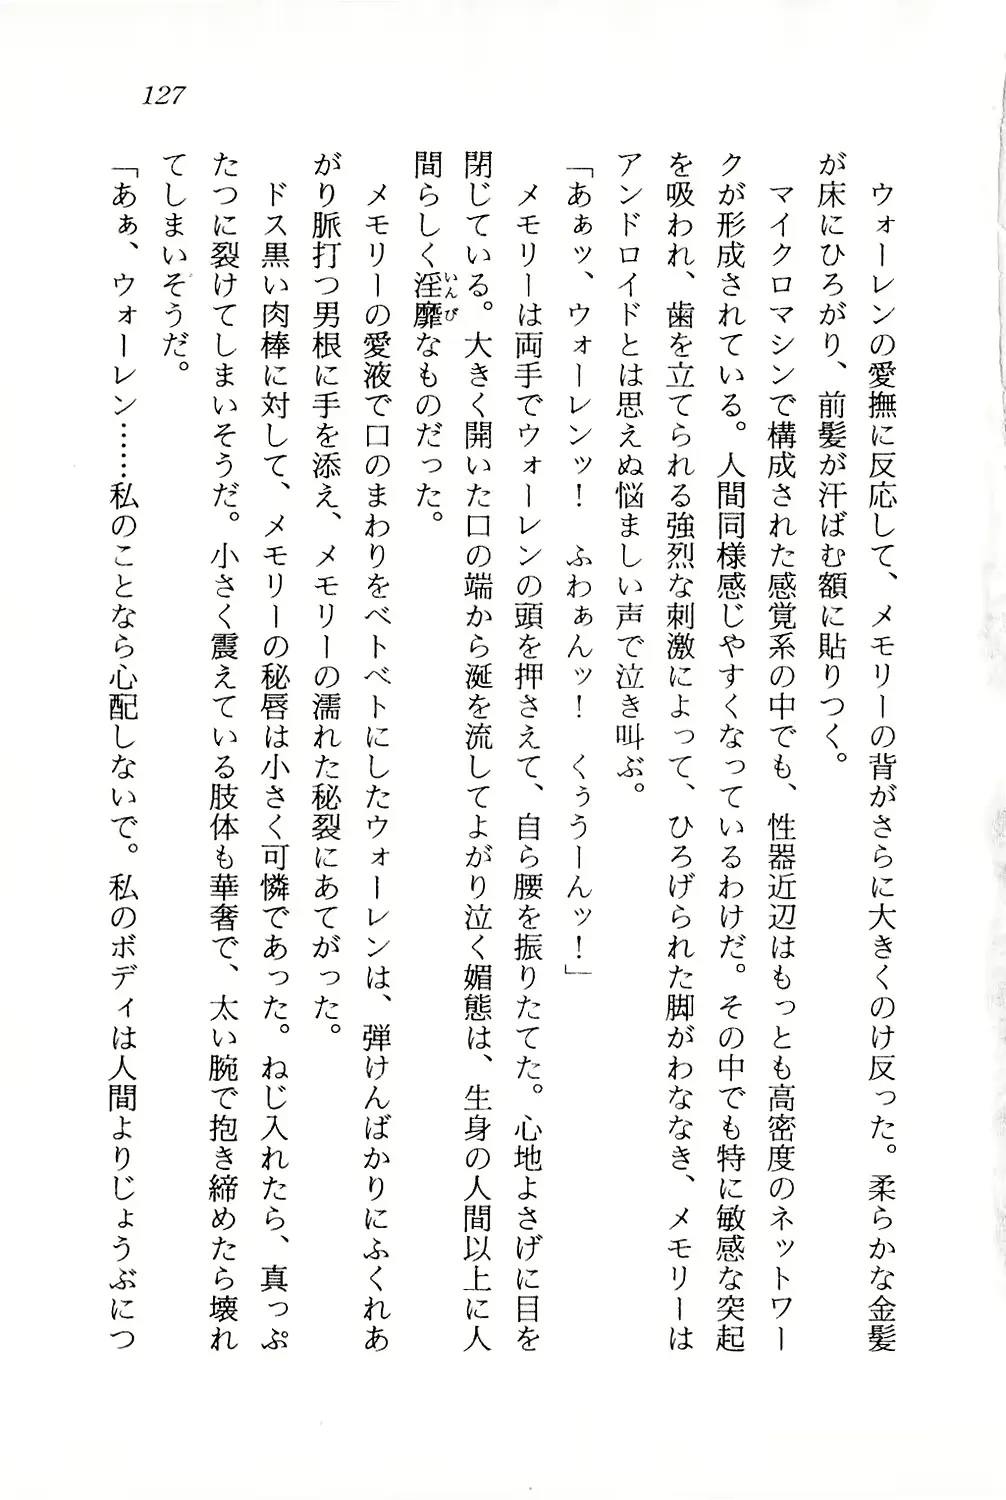 127
ウォーレンの愛撫に反応して、メモリーの背がさらに大きくのけ反った。柔らかな金髪
が床にひろがり、前髪が汗ばむ額に貼りつく。
マイクロマシンで構成された感覚系の中でも、性器近辺はもっとも高密度のネットワー
クが形成されている。人間同様感じやすくなっているわけだ。その中でも特に敏感な突起
を吸われ、歯を立てられる強烈な刺激によって、ひろげられた脚がわななき、メモリーは
アンドロイドとは思えぬ悩ましい声で泣き叫ぶ。
「あぁッ、ウォーレンッ！　ふわぁんッ！　くぅうーんッ！」
メモリーは両手でウォーレンの頭を押さえて、自ら腰を振りたてた。心地よさげに目を
閉じている。大きく開いた口の端から涎を流してよがり泣く媚態は、生身の人間以上に人
間らしく淫靡いんびなものだった。
メモリーの愛液で口のまわりをベトベトにしたウォーレンは、弾けんばかりにふくれあ
がり脈打つ男根に手を添え、メモリーの濡れた秘裂にあてがった。
ドス黒い肉棒に対して、メモリーの秘唇は小さく可憐であった。ねじ入れたら、真っぷ
たつに裂けてしまいそうだ。小さく震えている肢体も華奢で、太い腕で抱き締めたら壊れ
てしまいそうだ。
「あぁ、ウォーレン……私のことなら心配しないで。私のボディは人間よりじょうぶにつ